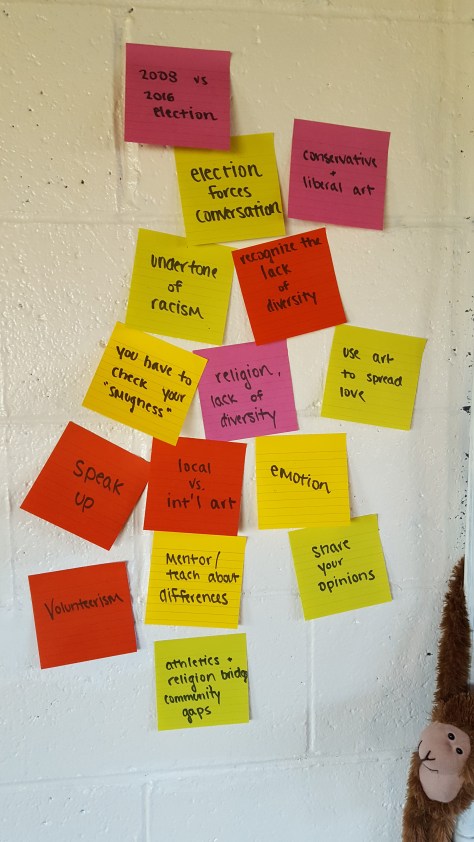 2008 vs
2016
election
election
forces
conversation
conservative
+
liberal art
undertone
of
racism
recognize the
lack
of
diversity
you have to
check your
"smugness"
religion,
lack of
diversity
use art
to spread
love
speak
up
local
vs.
int'l art
emotion
Mentor/
teach about
differences
share
your
opinions
Volunteerism
athletics +
religion bridge
community
gaps